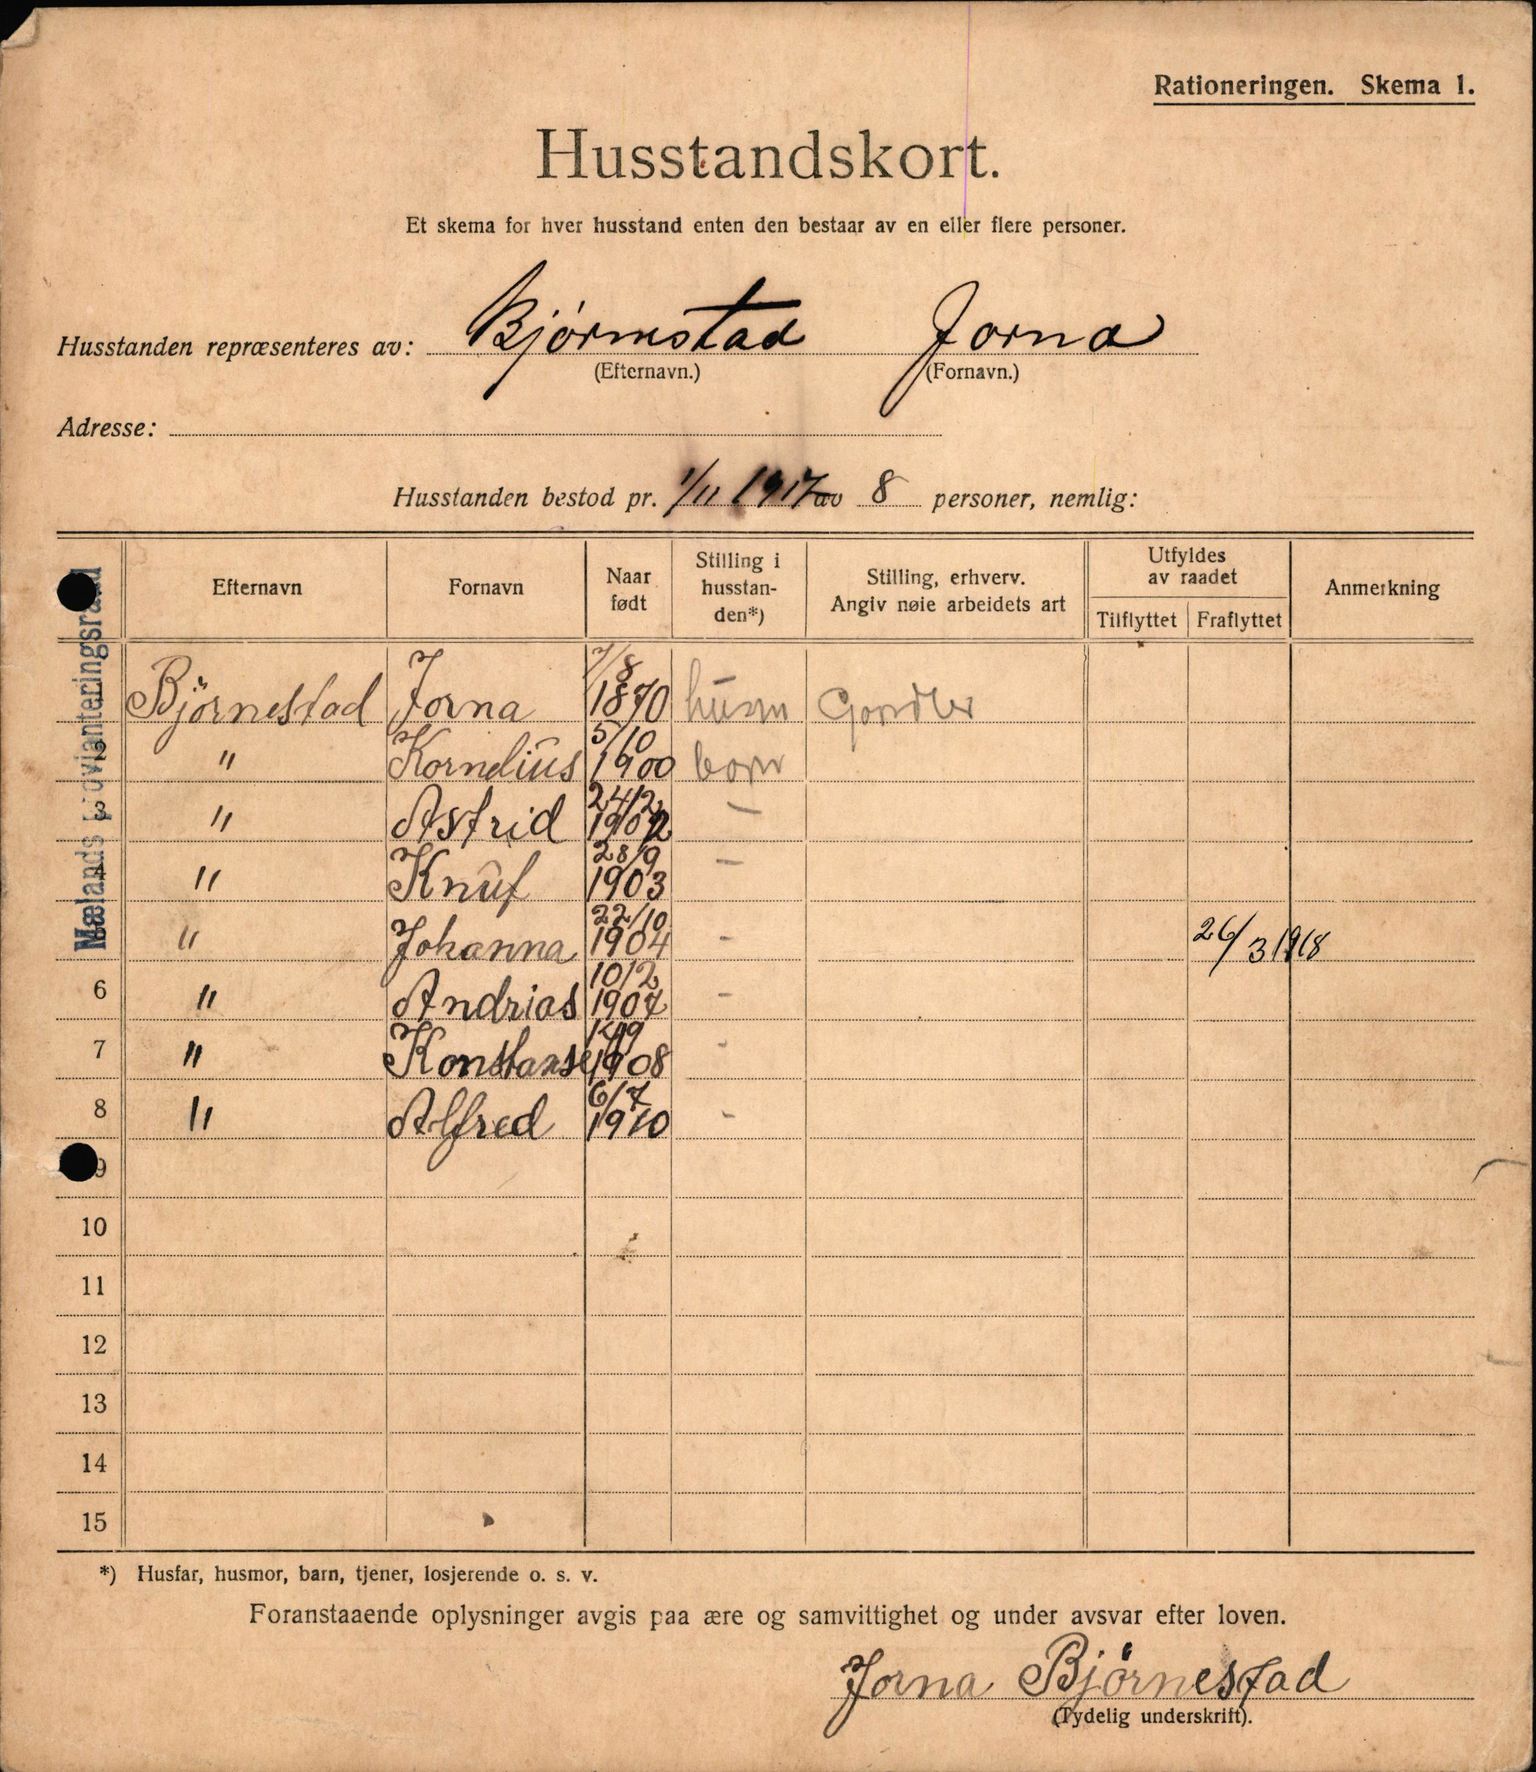 Rationeringen. Skema 1.
Husstandskort.
Et skema for hver husstand enten den bestaar av en eller flere personer.
Husstanden repræsenteres av: Bjørnestad Jorna
(Efternavn.) (Fornavn.)
Adresse:
Husstanden bestod pr. 1/11 1917 av 8 personer, nemlig:
Efternavn Fornavn Naar født Stilling i husstanden*) Stilling, erhverv. Angiv nøie arbeidets art Utfyldes av raadet Tilflyttet Fraflyttet Anmerkning
Mælands provianteringsraad
Bjørnestad Jorna 7/8 1870 husm
" Kornelius 5/10 1900 born
" Astrid 24/2 1902 –
" Knut 28/9 1903 –
" Johanna 22/10 1904 - 26/3 1918
6 " Andrias 10/2 1907 -
7 " Konstanse 1908 -
8 " Alfred 6/7 1910 -
9
10
11
12
13
14
15
*) Husfar, husmor, barn, tjener, losjerende o. s. v.
Foranstaaende oplysninger avgis paa ære og samvittighet og under avsvar efter loven.
Jorna Bjørnestad
(Tydelig underskrift).